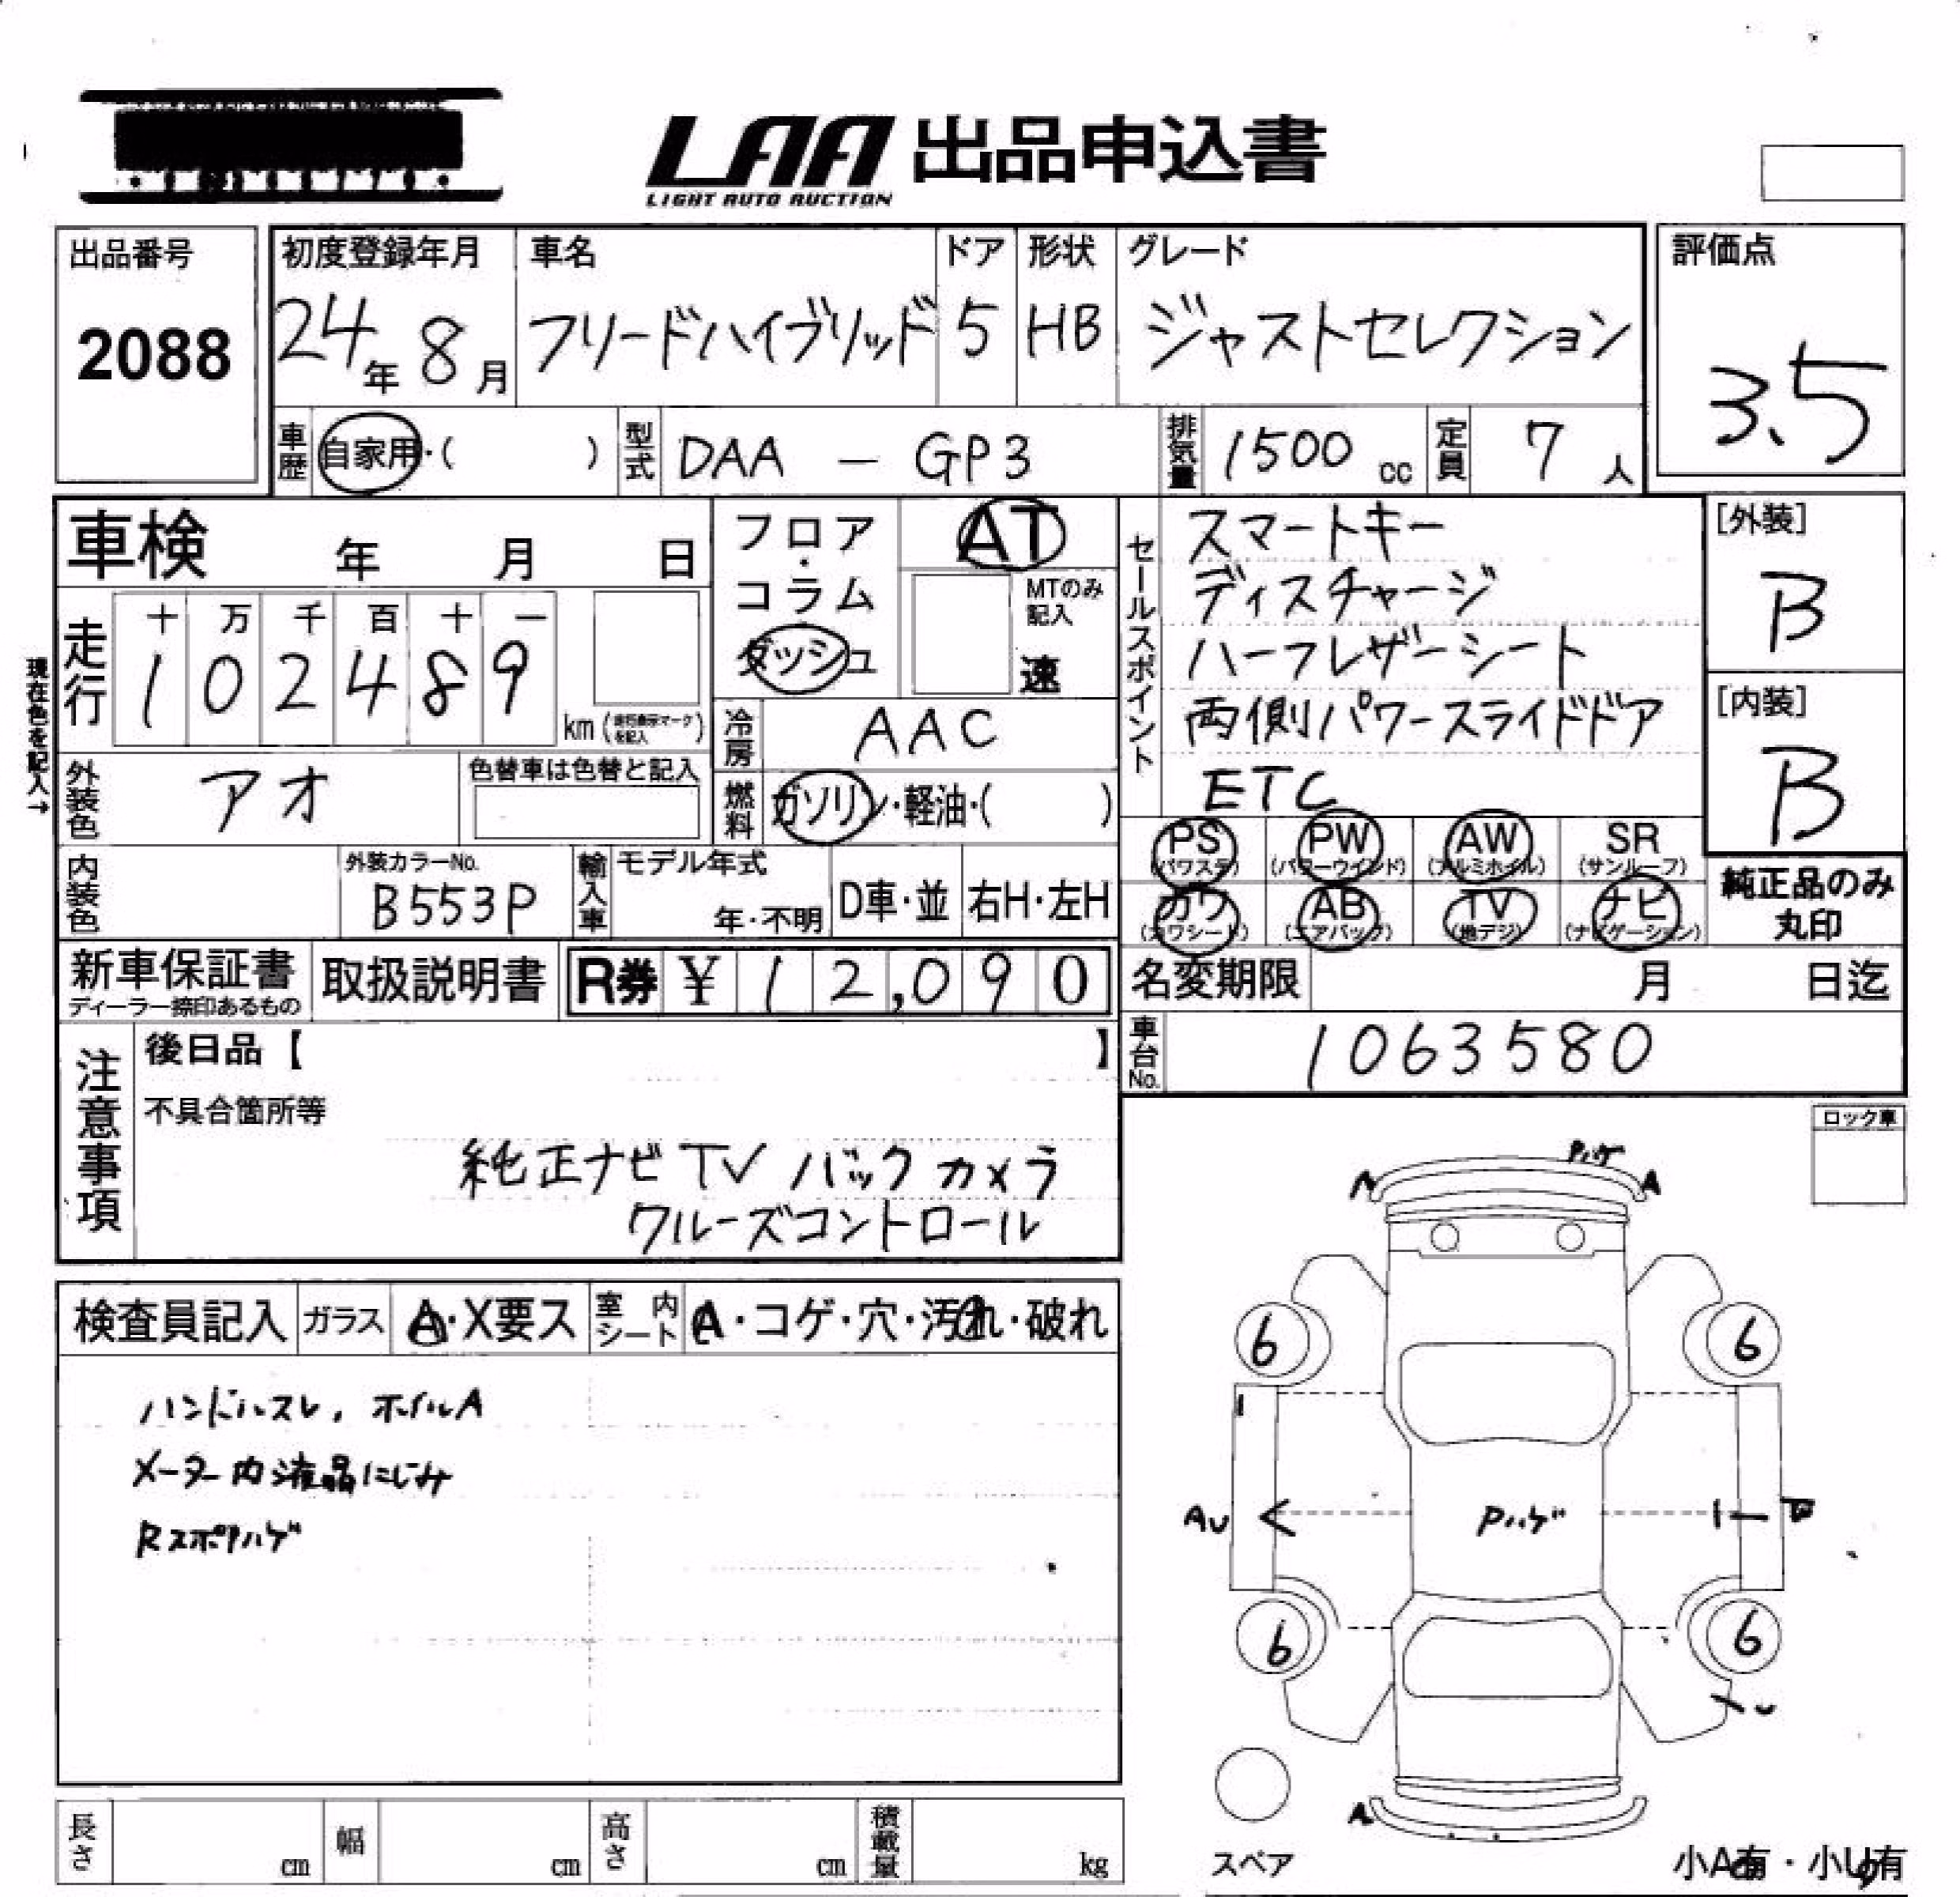 LAA 出品申込書
LIGHT AUTO AUCTION
出品番号
2088
初度登録年月
24年 8月
車名
フリードハイブリッド
ドア
5
形状
HB
グレード
ジャストセレクション
評価点
3.5
車歴 自家用・( )
型式 DAA - GP3
排気量 1500 cc
定員 7 人
車検 年 月 日
走行
十 万 千 百 十 一
1 0 2 4 8 9
km (走行表示マークを記入)
現在色を記入→
フロア・コラム
ダッシュ
AT
MTのみ記入
速
セールスポイント
スマートキー
ディスチャージ
ハーフレザーシート
両側パワースライドドア
ETC
[外装]
B
[内装]
B
冷房 AAC
燃料 ガソリン・軽油・( )
外装色 アオ
色替車は色替と記入
内装色
外装カラーNo.
B553P
輸入車
モデル年式
年・不明
D車・並
右H・左H
PS (パワステ)
PW (パワーウインド)
AW (アルミホイル)
SR (サンルーフ)
カワ (カワシート)
AB (エアバック)
TV (地デジ)
ナビ (ナビゲーション)
純正品のみ
丸印
新車保証書
ディーラー捺印あるもの
取扱説明書
R券 ¥ 12,090
名変期限 月 日迄
車台No. 1063580
注意事項
後日品【 】
不具合箇所等
純正ナビTV バックカメラ
クルーズコントロール
ロック車
検査員記入
ガラス A・X要ス
室内シート A・コゲ・穴・汚れ・破れ
ハンドルスレ, ホイルA
メーター内液晶にじみ
RスポPハゲ
Pハゲ
A A
6 6
AU
Pハゲ
6 6
A
スペア
小A有・小U有
長さ cm
幅 cm
高さ cm
積載量 kg